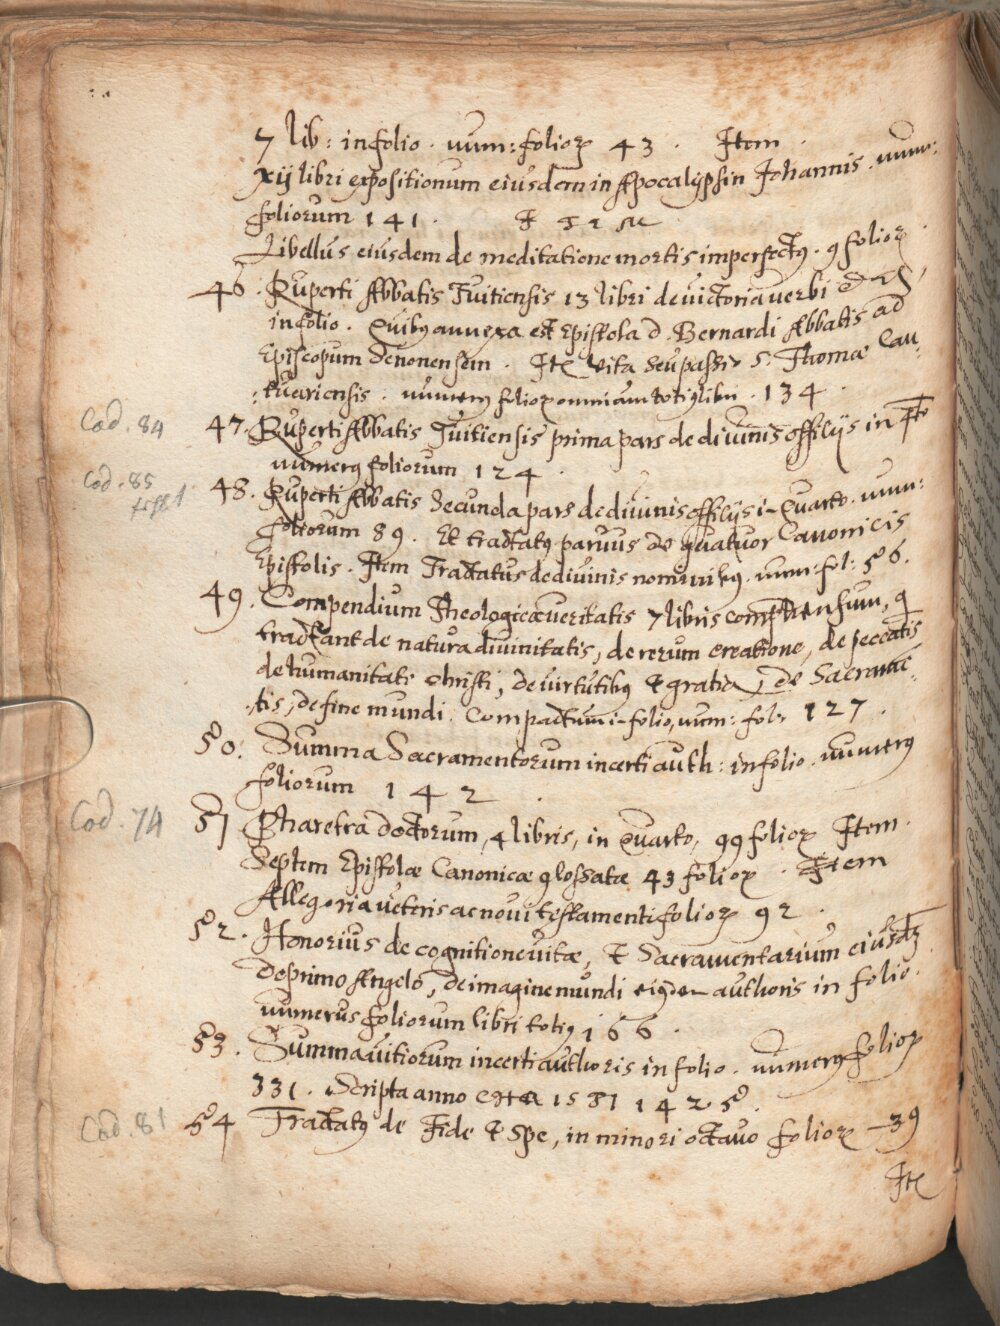 7 lib: in folio. num: folioꝝ 43. Item
xij libri expositionum eiusdem in Apocalypsin Johannis. num:
foliorum 141.
Libellus eiusdem de meditatione mortis imperfectꝰ. 9 folioꝝ
46. Ruperti Abbatis Tuitiensis 13 libri de victoria verbi
in folio. Quibꝰ annexa est Epistola d. Bernardi Abbatis ad
Episcopum Senonensem. Ite vita seu passi S. Thomae Can-
tuariensis. numerꝰ folioꝝ omnium totiꝰ libri. 134.
Cod. 84 47. Ruperti Abbatis Tuitiensis prima pars de diuinis offitijs in 4to
numerꝰ foliorum 124.
Cod. 85 48. Ruperti Abbatis secunda pars de diuinis offitijs i Quarto. num:
foliorum 89. Et tractatꝰ paruus de quatuor Canonicis
Epistolis. Item Tractatus de diuinis nominibꝰ. num: fol: 56.
49. Compendium Theologicae veritatis 7 libris comprehensum, q
tractant de natura diuinitatis, de rerum creatione, de peccatis
de humanitate Christi, de virtutibꝰ & gratia, de Sacramē
-tis, de fine mundi. Compactum i folio, num: fol: 127.
50. Summa Sacramentorum incerti auth: in folio. numerꝰ
foliorum 142
Cod. 74 51 Pharetra doctorum, 4 libris, in Quarto, 99 folioꝝ Item.
Septem Epistolae Canonicae glossatae 43 folioꝝ. Item
Allegoria veteris ac noui testamenti folioꝝ 92.
52. Honorius de cognitione vitae, & Sacramentarium eiusdꝫ
De primo Angelo, de imagine mundi eiꝰdem authoris in folio.
numerus foliorum libri totiꝰ 166.
53. Summa vitiorum incerti authoris in folio. numerꝰ folioꝝ
331. Scripta anno 1425.
Cod. 81 54 Tractatꝰ de Fide & Spe, in minori octauo folioꝝ 39
Ite